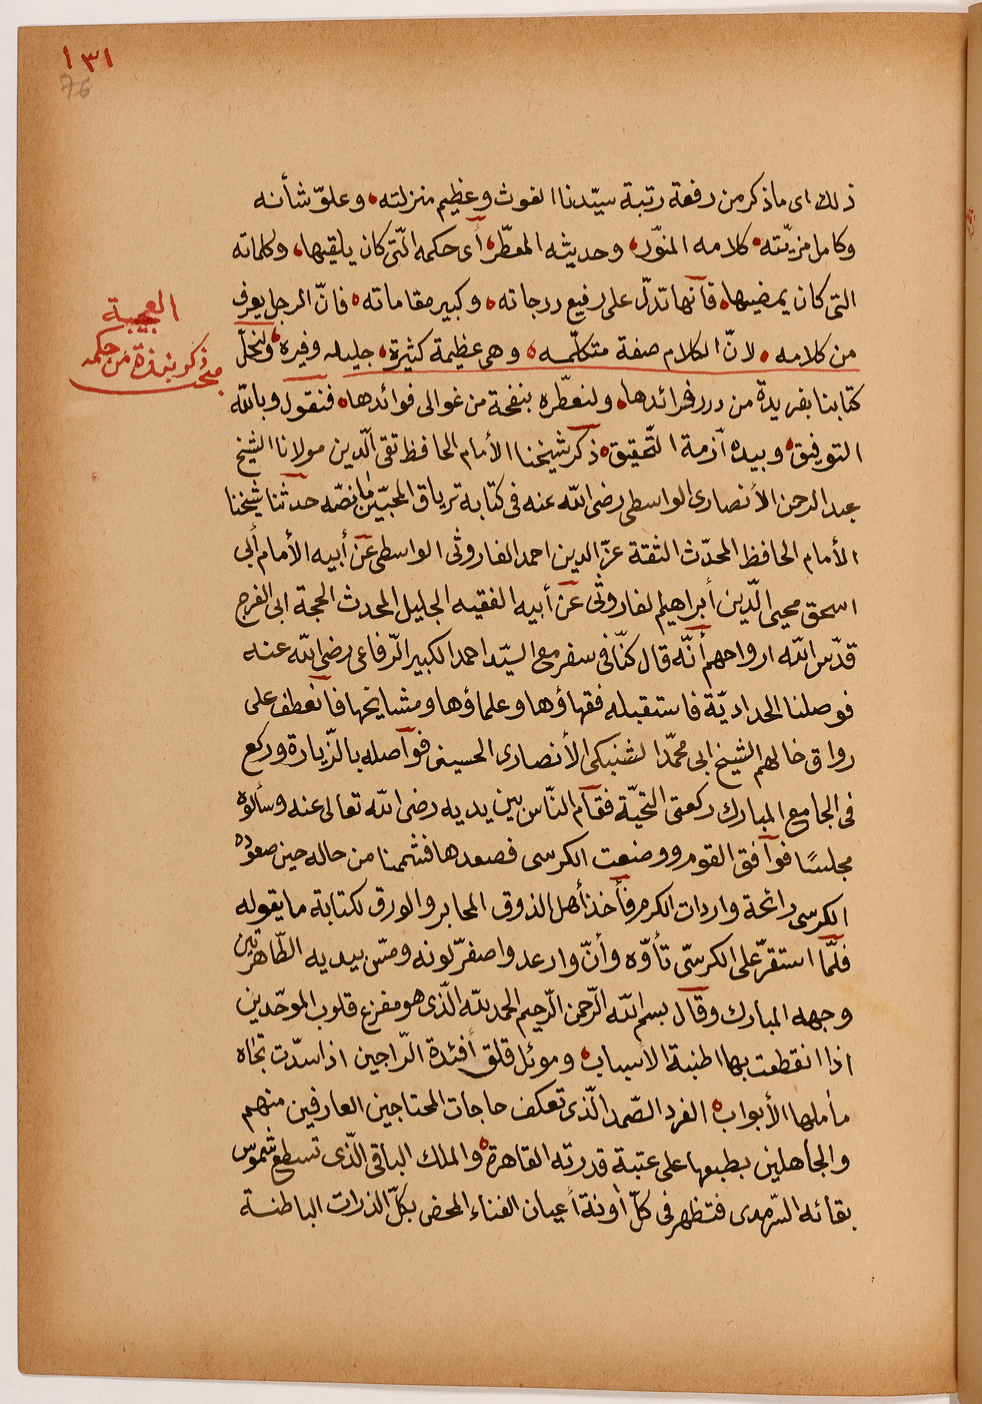 ١٣١
76
ذلك اى ما ذكر من رفعة رتبة سيّدنا الغوث وعظيم منزلته، وعلوّ شأنه
وكامل مزيّته، كلامه المنوّر، وحديثه المعطّر، أى حكمه الّتى كان يلقيها، وكلماته
التى كان يمضيها، فأنّها تدلّ على رفيع درجاته، وكبير مقاماته، فانّ الرجل يعرف
من كلامه، لانّ الكلام صفة متكلّمه، وهى عظيمة كثيرة، جليله وفيرة، ولنحلّ
العجيبة
ذكر نبذة من حكمه
كتابنا بفريدة من درر فرائدها، ولنعطّره بنفحة من غوالى فوائدها، فنقول وبالله
التوفيق، وبيده أزمة التّحقيق، ذكر شيخنا الأمام الحافظ تقى الّدين مولانا الشيخ
عبد الرحمن الأنصارى الواسطى رضى الله عنه فى كتابه ترياق المحبّين ما نصّه حدثنا شيخنا
الأمام الحافظ المحدّث الثقة عزّ الدين احمد الفاروثى الواسطى عن أبيه الأمام أبى
اسحق محيى الّدين أبراهيم الفاروثى عن أبيه الفقيه الجليل المحدث الحجة ابى الفرج
قدّس الله ارواحهم أنّه قال كنّا فى سفر مع السيّد احمد الكبير الرّفاعى رضى الله عنه
فوصلنا الحداديّة فاستقبله فقهاؤها وعلماؤها ومشايخها فانعطف على
رواق خالهم الشيخ ابى محمّد الشنبكى الأنصارى الحسينى فواصله بالزّيارة وركع
فى الجامع المبارك ركعتى التحيّة فقام النّاس بين يديه رضى الله تعالى عنه وسألوه
مجلسًا فوافق القوم ووضعت الكرسى فصعدها فشممنا من حاله حين صعوده
الكرسى رائحة واردات الكرم فأخذ أهل الذوق المحابر والورق لكتابة ما يقوله
فلمّا استقرّ على الكرسىّ تأوّه وأنّ وارعد واصفرّ لونه ومسّ بيديه الطّاهرتين
وجهه المبارك وقال بسم الله الرّحمن الرّحيم الحمد لله الّذى هو مفزع قلوب الموحّدين
اذا انقطعت بها اطنبة الاسباب، وموئل قلق أفئدة الرّاجين اذا سدّت تجاه
مأملها الأبواب، الفرد الصّمد الّذى تعكف حاجات المحتاجين العارفين منهم
والجاهلين بطبعها على عتبة قدرته القاهرة، والملك الباقى الّذى تسطع شموس
بقائه السّرمدى فتظهر فى كلّ أونة أعيان الفناء المحض بكلّ الذرات الباطنة